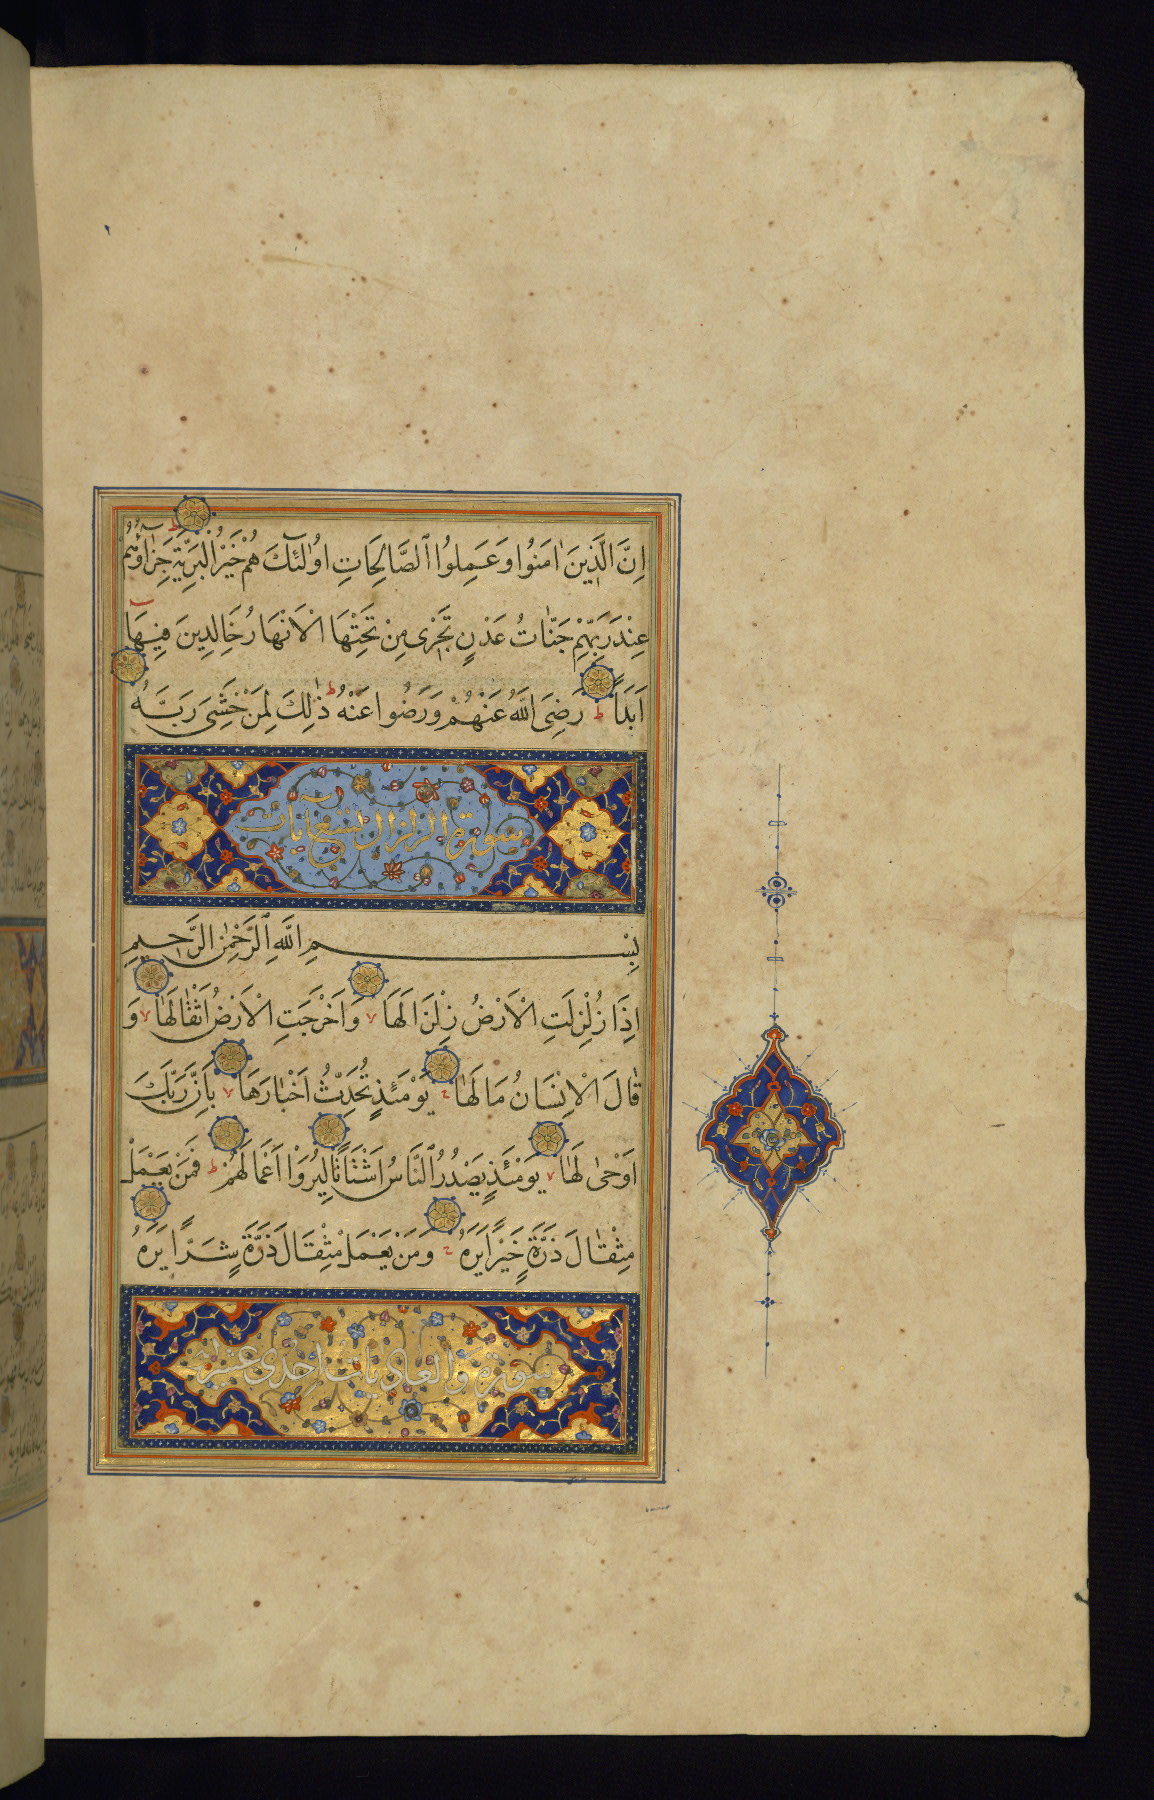 اِنَّ الَّذِينَ اٰمَنُوا وَعَمِلُوا الصَّالِحَاتِ اُولٰئِكَ هُمْ خَيْرُ الْبَرِيَّةِ جَزَاؤُهُمْ
عِنْدَ رَبِّهِمْ جَنَّاتُ عَدْنٍ تَجْرِى مِنْ تَحْتِهَا الْاَنْهَارُ خَالِدِينَ فِيهَا
اَبَدًا ط رَضِىَ اللّٰهُ عَنْهُمْ وَرَضُوا عَنْهُ ط ذٰلِكَ لِمَنْ خَشِىَ رَبَّهُ
سورة الزلزال تسع آيات
بِسْمِ اللّٰهِ الرَّحْمٰنِ الرَّحِيمِ
اِذَا زُلْزِلَتِ الْاَرْضُ زِلْزَالَهَا وَاَخْرَجَتِ الْاَرْضُ اَثْقَالَهَا وَ
قَالَ الْاِنْسَانُ مَا لَهَا يَوْمَئِذٍ تُحَدِّثُ اَخْبَارَهَا بِاَنَّ رَبَّكَ
اَوْحٰى لَهَا يَوْمَئِذٍ يَصْدُرُ النَّاسُ اَشْتَاتًا لِيُرَوْا اَعْمَالَهُمْ ط فَمَنْ يَعْمَلْ
مِثْقَالَ ذَرَّةٍ خَيْرًا يَرَهُ وَمَنْ يَعْمَلْ مِثْقَالَ ذَرَّةٍ شَرًّا يَرَهُ
سورة والعاديات احدى عشر